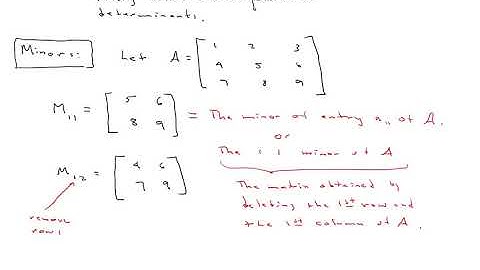 determinants.
Minors: Let A = [ 1 2 3
4 5 6
7 8 9 ]
M11 = [ 5 6
8 9 ] = The minor of entry a11 of A.
or
The 1 1 minor of A
M12 = [ 4 6
7 9 ]
The matrix obtained by
deleting the 1st row and
the 1st column of A.
remove
row 1